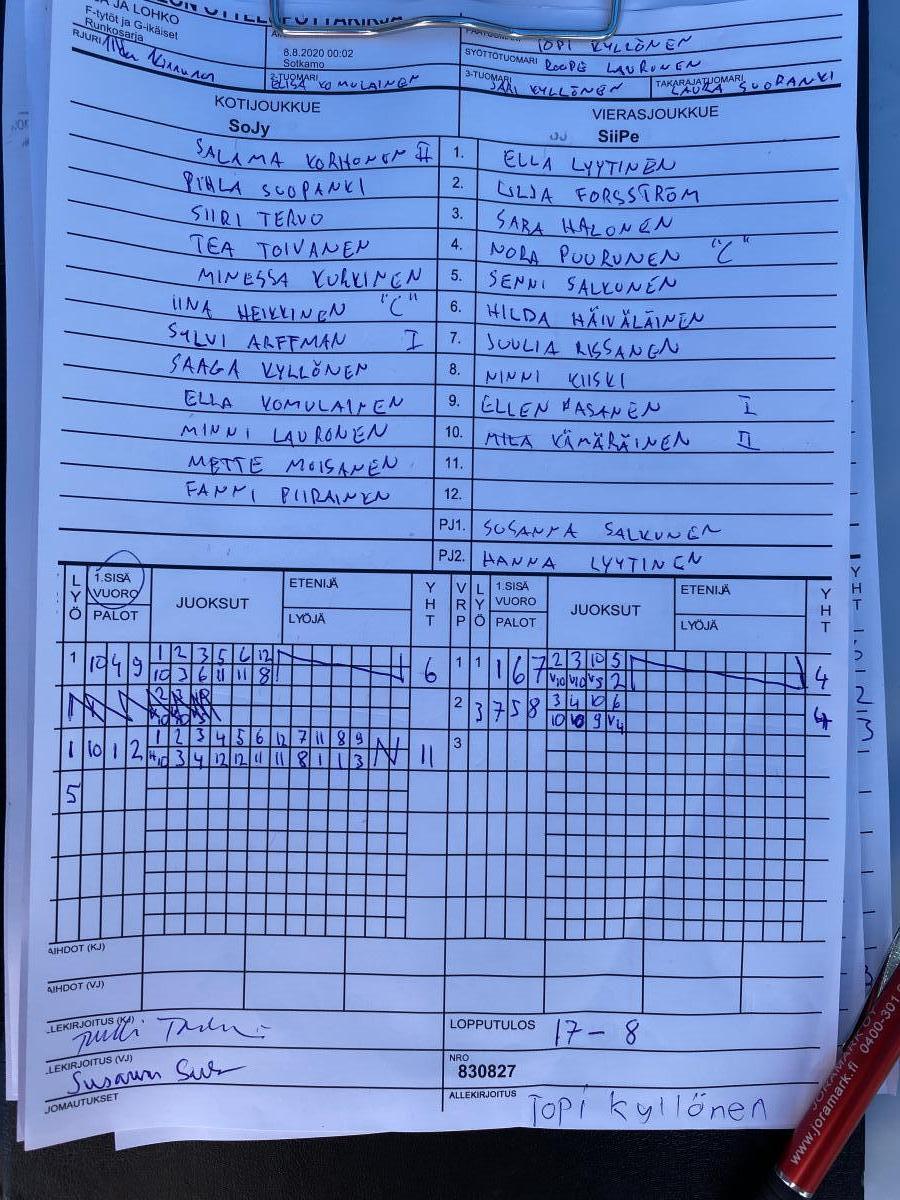 A JA LOHKO
F-tytöt ja G-ikäiset
Runkosarja
8.8.2020 00:02
Sotkamo
TOPI KYLLÖNEN
SYÖTTÖTUOMARI ROOPE LAURONEN
2-TUOMARI ELISA KOMULAINEN
3-TUOMARI SARI KYLLÖNEN
TAKARAJATUOMARI LAURA SUOPANKI
KOTIJOUKKUE VIERASJOUKKUE
SoJy SiiPe
SALAMA KORHONEN II 1. ELLA LYYTINEN
PIHLA SUOPANKI 2. LILJA FORSSTRÖM
SIIRI TERVO 3. SARA HALONEN
TEA TOIVANEN 4. NORA PUURUNEN "C"
MINESSA KURKINEN 5. SENNI SALKUNEN
IINA HEIKKINEN "C" 6. HILDA HÄIVÄLÄINEN
SYLVI ARFFMAN I 7. JUULIA RISSANEN
SAAGA KYLLÖNEN 8. NINNI KIISKI
ELLA KOMULAINEN 9. ELLEN HASANEN I
MINNI LAURONEN 10. MILA KÄMÄRÄINEN II
METTE MOISANEN 11.
FANNI PIIRAINEN 12.
PJ1. SUSANNA SALKUNEN
PJ2. HANNA LYYTINEN
LYÖ 1.SISÄ VUORO PALOT JUOKSUT ETENIJÄ LYÖJÄ YHT VRP LYÖ 1.SISÄ VUORO PALOT JUOKSUT ETENIJÄ LYÖJÄ YHT
1 10 4 9 1 2 3 5 6 12 6 1 1 1 6 7 2 3 10 5 4
10 3 6 11 11 8 V10 V10 V5 2
2 3 7 5 8 3 4 10 6 4
10 10 9 V4
1 10 1 2 1 2 3 4 5 6 12 7 11 8 9 11 3
10 3 4 12 12 11 11 8 1 1 3
5
AIHDOT (KJ)
AIHDOT (VJ)
LEKIRJOITUS (KJ)
LOPPUTULOS 17 - 8
LEKIRJOITUS (VJ) Susanna
NRO
830827
JOMAUTUKSET
ALLEKIRJOITUS Topi kyllönen
www.joramark.fi 0400-301